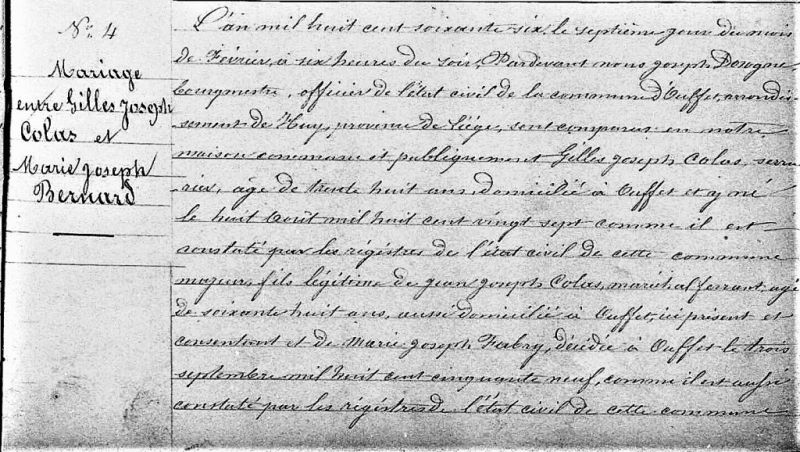 No. 4
Mariage
entre Gilles Joseph
Colas et
Marie Joseph
Bernard
L'an mil huit cent soixante six, le septième jour du mois
de Février, à six heures du soir, Pardevant nous joseph
bourgmestre, officier de l'état civil de la commune d'Ouffet, arrondis-
sement de Huy, province de Liége, sont comparus en notre
maison commune et publiquement Gilles joseph Colas, serru-
rier, agé de trente huit ans, domicilié à Ouffet et y né
le huit Août mil huit cent vingt sept comme il est
constaté par les régistres de l'état civil de cette commune
majeur, fils légitime de jean joseph Colas, maréchal ferrant, agé
de soixante huit ans, aussi domicilié à Ouffet, ici présent et
consentant et de Marie joseph Fabry, décédée à Ouffet le trois
septembre mil huit cent cinquante neuf, comme il est aussi
constaté par les régistres de l'état civil de cette commune